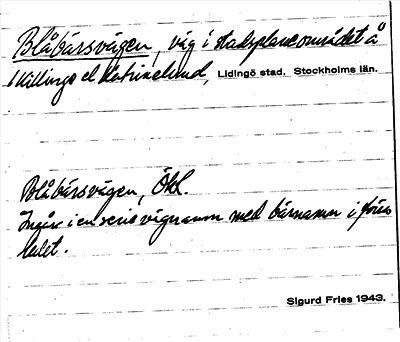 Blåbärsvägen, väg i stadsplaneområdet å
Killinge el Katrinelund, Lidingö stad. Stockholms län.
Blåbärsvägen, Ökl.
Ingår i en serie vägnamn med bärnamn i förs
ledet.
Sigurd Fries 1943.